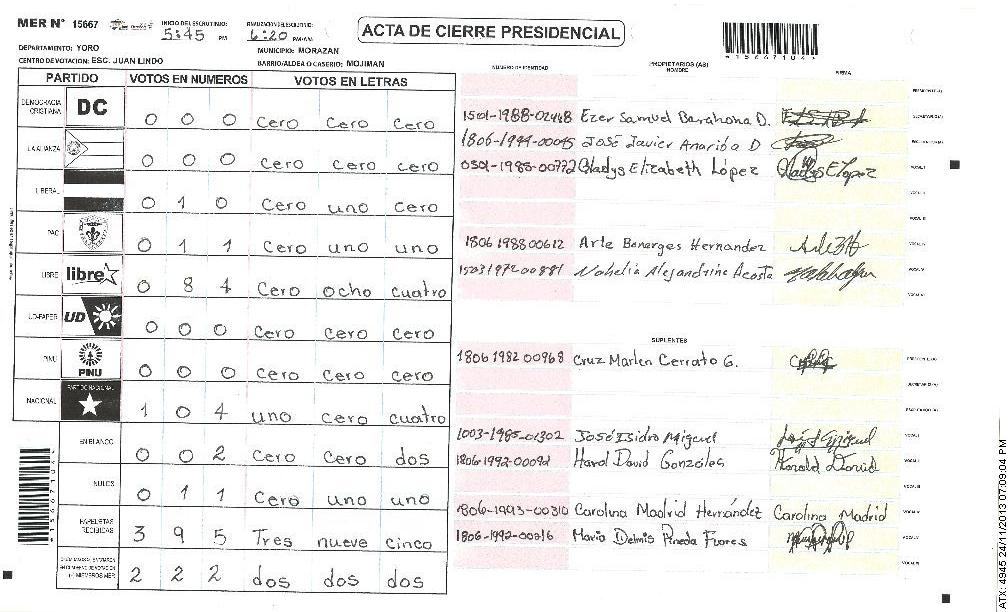 MER N° 15667
INICIO DEL ESCRUTINIO: 5:45 PM
FINALIZACION DEL ESCRUTINIO: 6:20 PM/AM
ACTA DE CIERRE PRESIDENCIAL
*15667104*
DEPARTAMENTO: YORO
MUNICIPIO: MORAZAN
CENTRO DE VOTACION: ESC. JUAN LINDO
BARRIO/ALDEA O CASERIO: MOJIMAN
PARTIDO VOTOS EN NUMEROS VOTOS EN LETRAS
DEMOCRACIA CRISTIANA DC 0 0 0 Cero Cero Cero
LA ALIANZA 0 0 0 Cero Cero Cero
LIBERAL 0 1 0 Cero uno cero
PAC 0 1 1 Cero uno uno
LIBRE libre 0 8 4 Cero ocho cuatro
UD-FAPER UD 0 0 0 Cero Cero Cero
PINU PINU 0 0 0 Cero Cero Cero
NACIONAL PARTIDO NACIONAL 1 0 4 uno Cero cuatro
EN BLANCO 0 0 2 Cero Cero dos
NULOS 0 1 1 Cero uno uno
PAPELETAS RECIBIDAS 3 9 5 Tres nueve cinco
(+) MIEMBROS MER 2 2 2 dos dos dos
NUMERO DE IDENTIDAD
PROPIETARIOS (AS)
NOMBRE
FIRMA
1501-1988-02468 Ezer Samuel Barahona D.
1806-1994-00045 José Javier Anariba D
0501-1985-00772 Gladys Elizabeth López Gladys E Lopez
1806 1988 00612 Arle Benerges Hernandez
1503 1972 00881 Nohelia Alejandrine Acosta
SUPLENTES
1806 1982 00968 Cruz Marlen Cerrato G.
1003-1985-01302 José Isidro Miguel
1806-1992-00092 Harol David Gonzáles Harold David
1806-1993-00310 Carolina Madrid Hernández Carolina Madrid
1806-1992-00016 Maria Delmis Pineda Funes
ATX: 4945 24/11/2013 07:09:04 PM